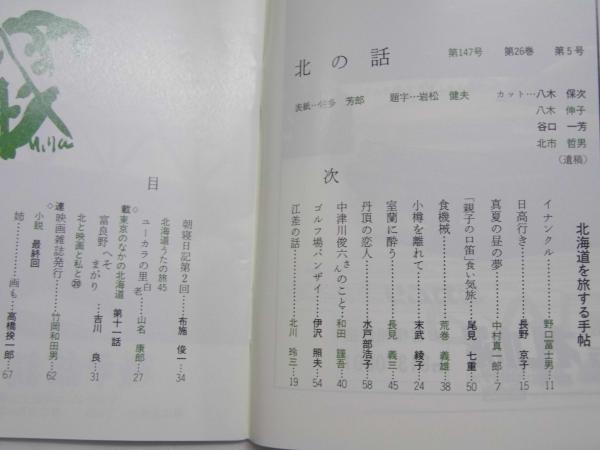 北の話
第147号 第26巻 第5号
表紙…佐多 芳郎 題字…岩松 健夫 カット…八木 保次
八木 伸子
谷口 一芳
北市 哲男
(遺稿)
北海道を旅する手帖
目次
イナンクル……野口冨士男…11
日高行き……長野 京子…15
真夏の昼の夢……中村真一郎…7
「親子の口笛」食い気旅…尾見 七重…50
食機械……荒巻 義雄…38
小樽を離れて……末武 綾子…24
室蘭に酔う……長見 義三…45
丹頂の恋人……水戸部浩子…58
中津川俊六さんのこと…和田 謹吾…40
ゴルフ場バンザイ……伊沢 照夫…54
江差の話……北川 玲三…19
朝寝日記第2回……布施 俊一…34
北海道うたの旅45
ユーカラの里白老……山名 康郎…27
連載◇東京のなかの北海道 第十一話
富良野へそまがり……吉川 良…31
北と映画と私と⑳
◇映画雑誌発行……竹岡和田男…62
小説 最終回
姉……画も…高橋揆一郎…67